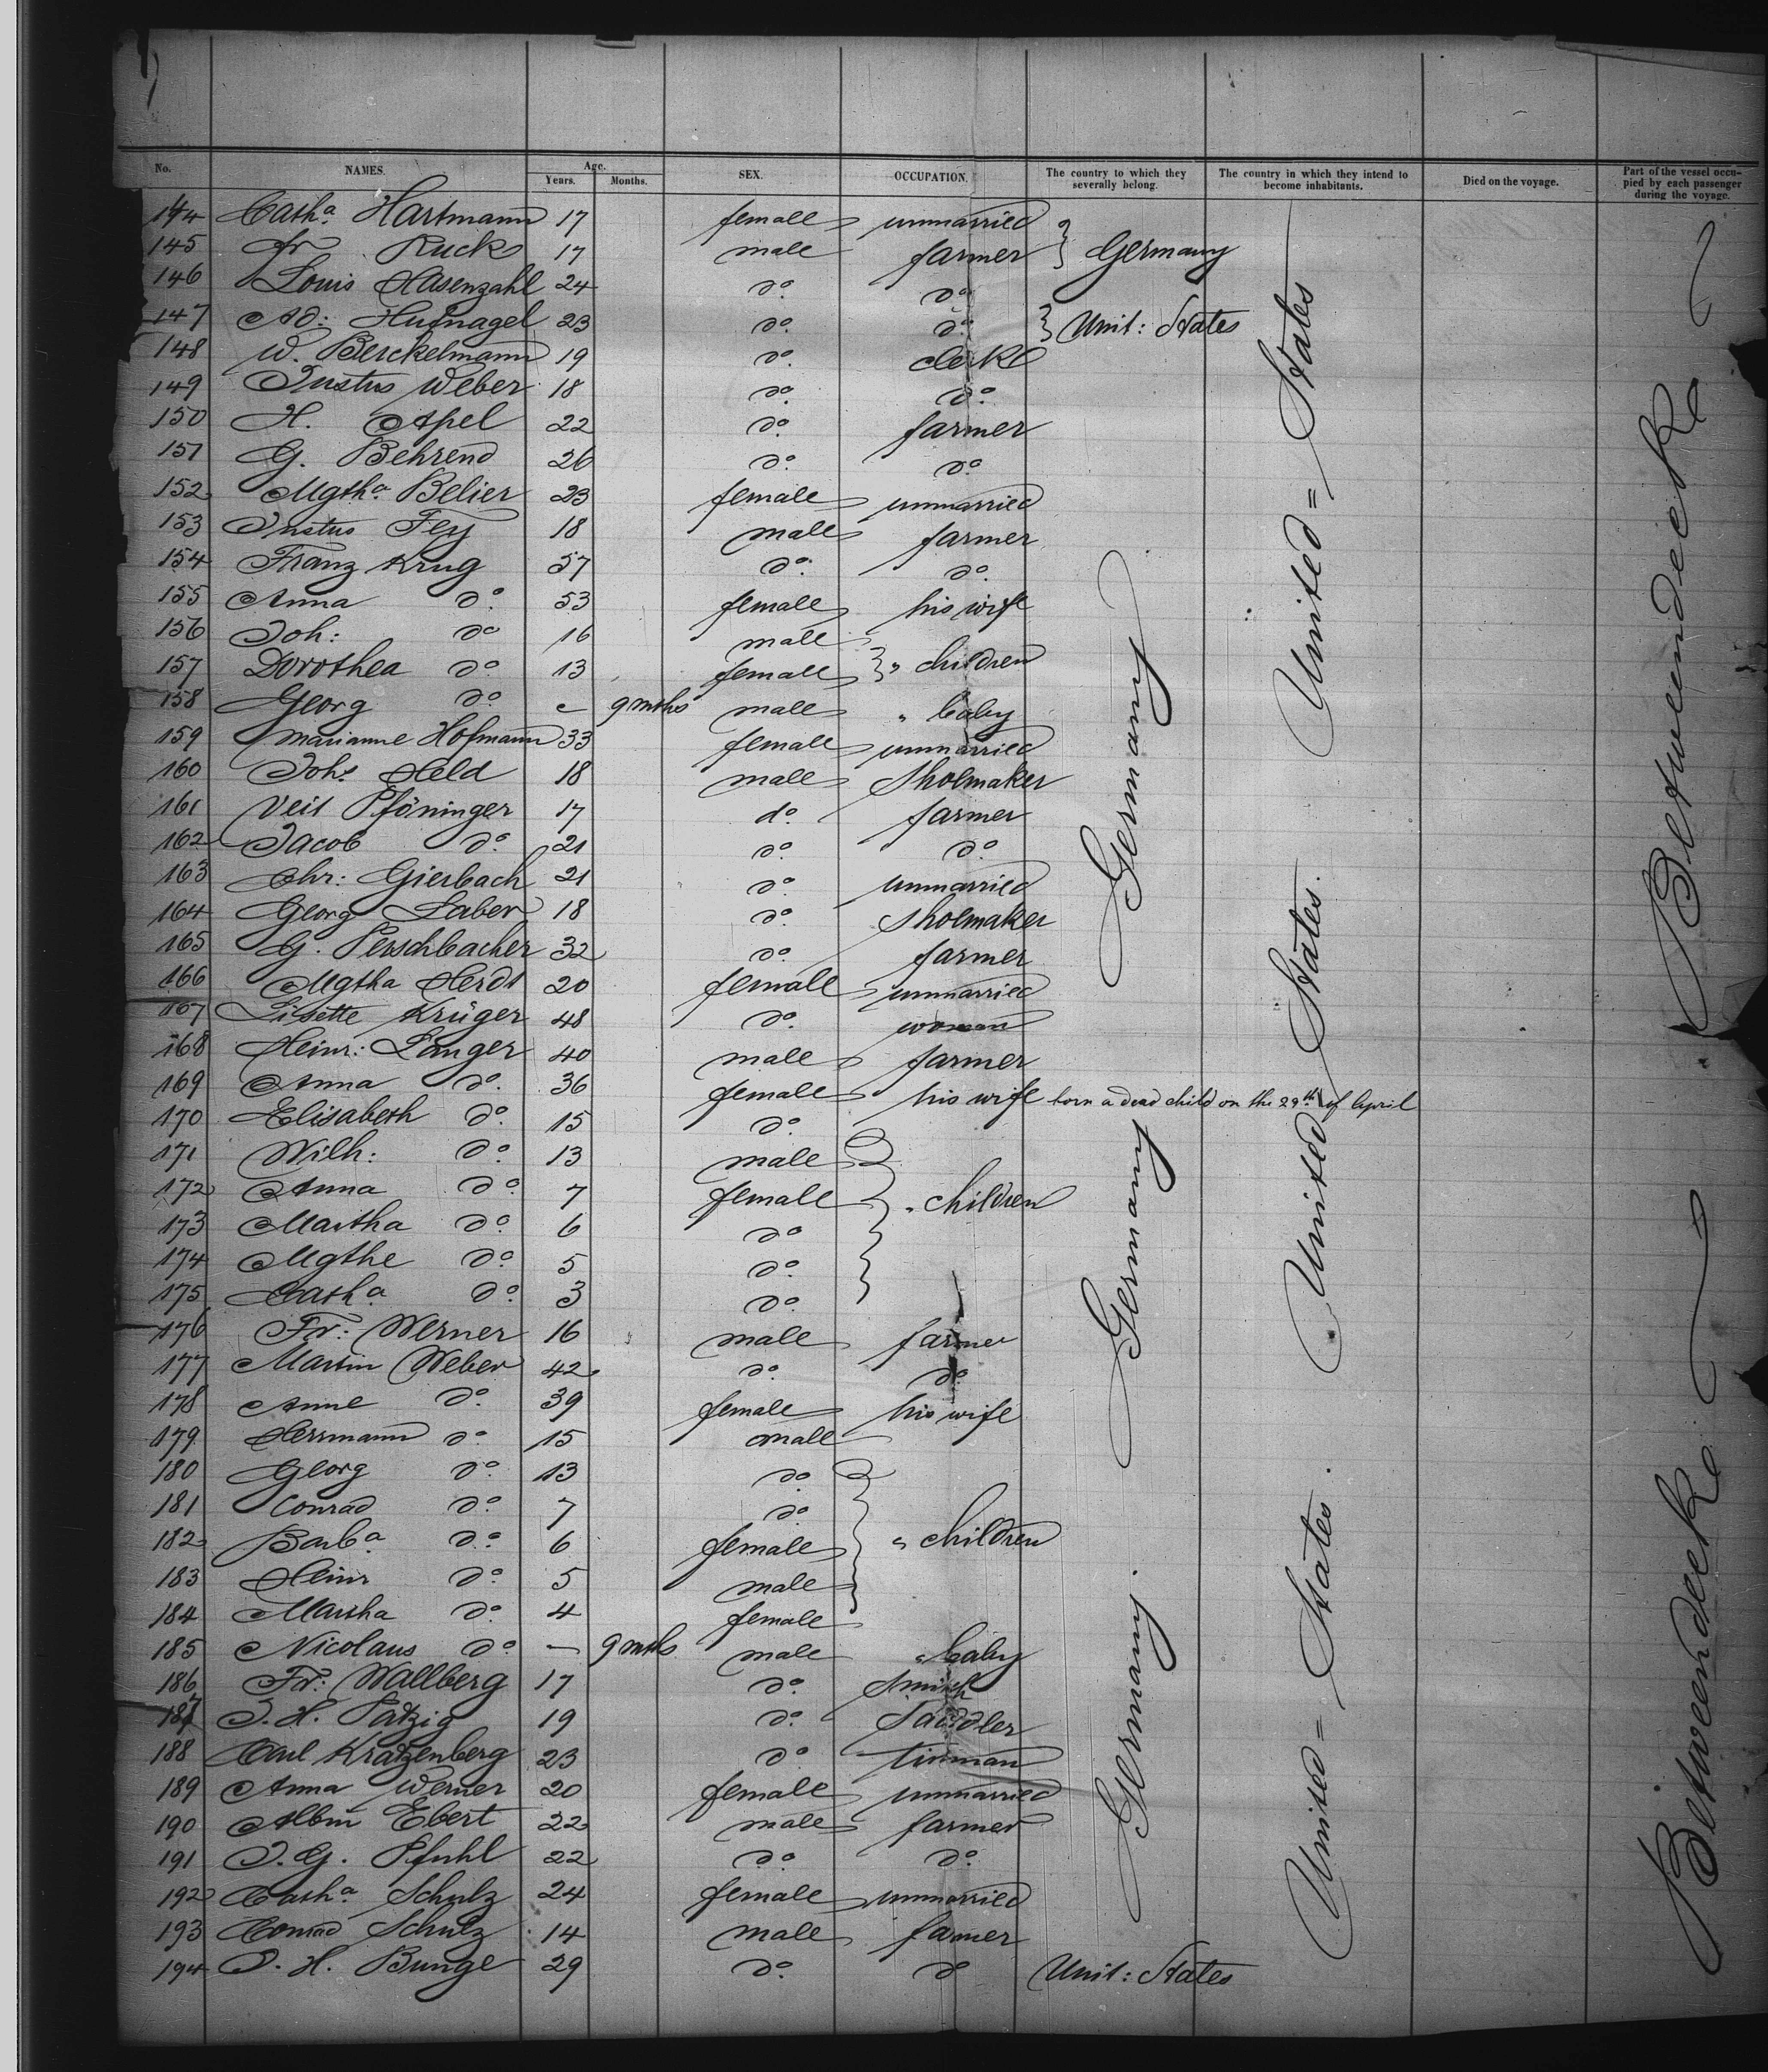 No. NAMES. Age. Years. Months. SEX. OCCUPATION. The country to which they severally belong. The country in which they intend to become inhabitants. Died on the voyage. Part of the vessel occupied by each passenger during the voyage.
144 Cath.a Hartmann 17 female unmarried
145 Fr Ruck 17 male farmer } Germany
146 Louis Hasenzahl 24 do. do.
147 Ad: Hufnagel 23 do. do. } Unit: States
148 W. Berckelmann 19 do. clerk
149 Justus Weber 18 do. do.
150 H. Apel 22 do. farmer
151 G. Behrend 26 do. do.
152 Mgth.a Belier 23 female unmarried
153 Justus Fey 18 male farmer
154 Franz Krug 57 do. do.
155 Anna do. 53 female his wife
156 Joh: do 16 male
157 Dorothea do. 13 female } " children
158 Georg do. - 9 mths male " baby
159 Marianne Hofmann 33 female unmarried
160 Johs Held 18 male Shoemaker
161 Veit Pföninger 17 do. farmer
162 Jacob do. 21 do. do.
163 Chr: Gierbach 21 do. unmarried
164 Georg Laber 18 do. Shoemaker
165 G. Perschbacher 32 do. farmer
166 Mgtha Herdt 20 female unmarried
167 Lisette Krüger 48 do. woman
168 Heinr: Langer 40 male farmer
169 Anna do. 36 female his wife born a dead child on the 29th of April
170 Elisabeth do. 15 do.
171 Wilh: do. 13 male
172 Anna do. 7 female } " children
173 Martha do. 6 do.
174 Mgthe do. 5 do.
175 Cath.a do. 3 do.
176 Fr: Werner 16 male farmer
177 Martin Weber 42 do. do.
178 Anne do. 39 female his wife
179 Herrmann do. 15 male
180 Georg do. 13 do.
181 Conrad do. 7 do.
182 Barb.a do. 6 female } " children
183 Heinr do. 5 male
184 Martha do. 4 female
185 Nicolaus do. - 9 mths male " baby
186 Fr: Wallberg 17 do. Smith
187 J. H. Patzig 19 do. Saddler
188 Carl Kratzenberg 23 do. tinman
189 Anna Werner 20 female unmarried
190 Albin Ebert 22 male farmer
191 J. G. Pfuhl 22 do. do.
192 Cath.a Schulz 24 female unmarried
193 Conrad Schulz 14 male farmer
194 J. H. Bunge 29 do. do Unit: States
Germany
Germany
Germany.
United = States
United States.
United = States.
Betweendeck
Betweendeck